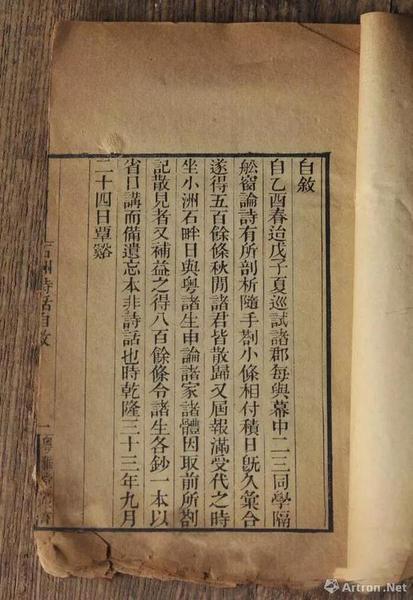 自敘
自乙酉春迨戊子夏巡試諸郡每與幕中二三同學隔
舩窗論詩有所剖析隨手劄小條相付積日旣久彙合
遂得五百餘條秋閒諸君皆散歸又屆報滿受代之時
坐小洲石畔日與粵諸生申論諸家諸體因取前所劄
記散見者又補益之得八百餘條令諸生各鈔一本以
省口講而備遺忘本非詩話也時乾隆三十三年九月
二十四日覃谿
石洲詩話自敘
一
粵雅堂
Artron.Net